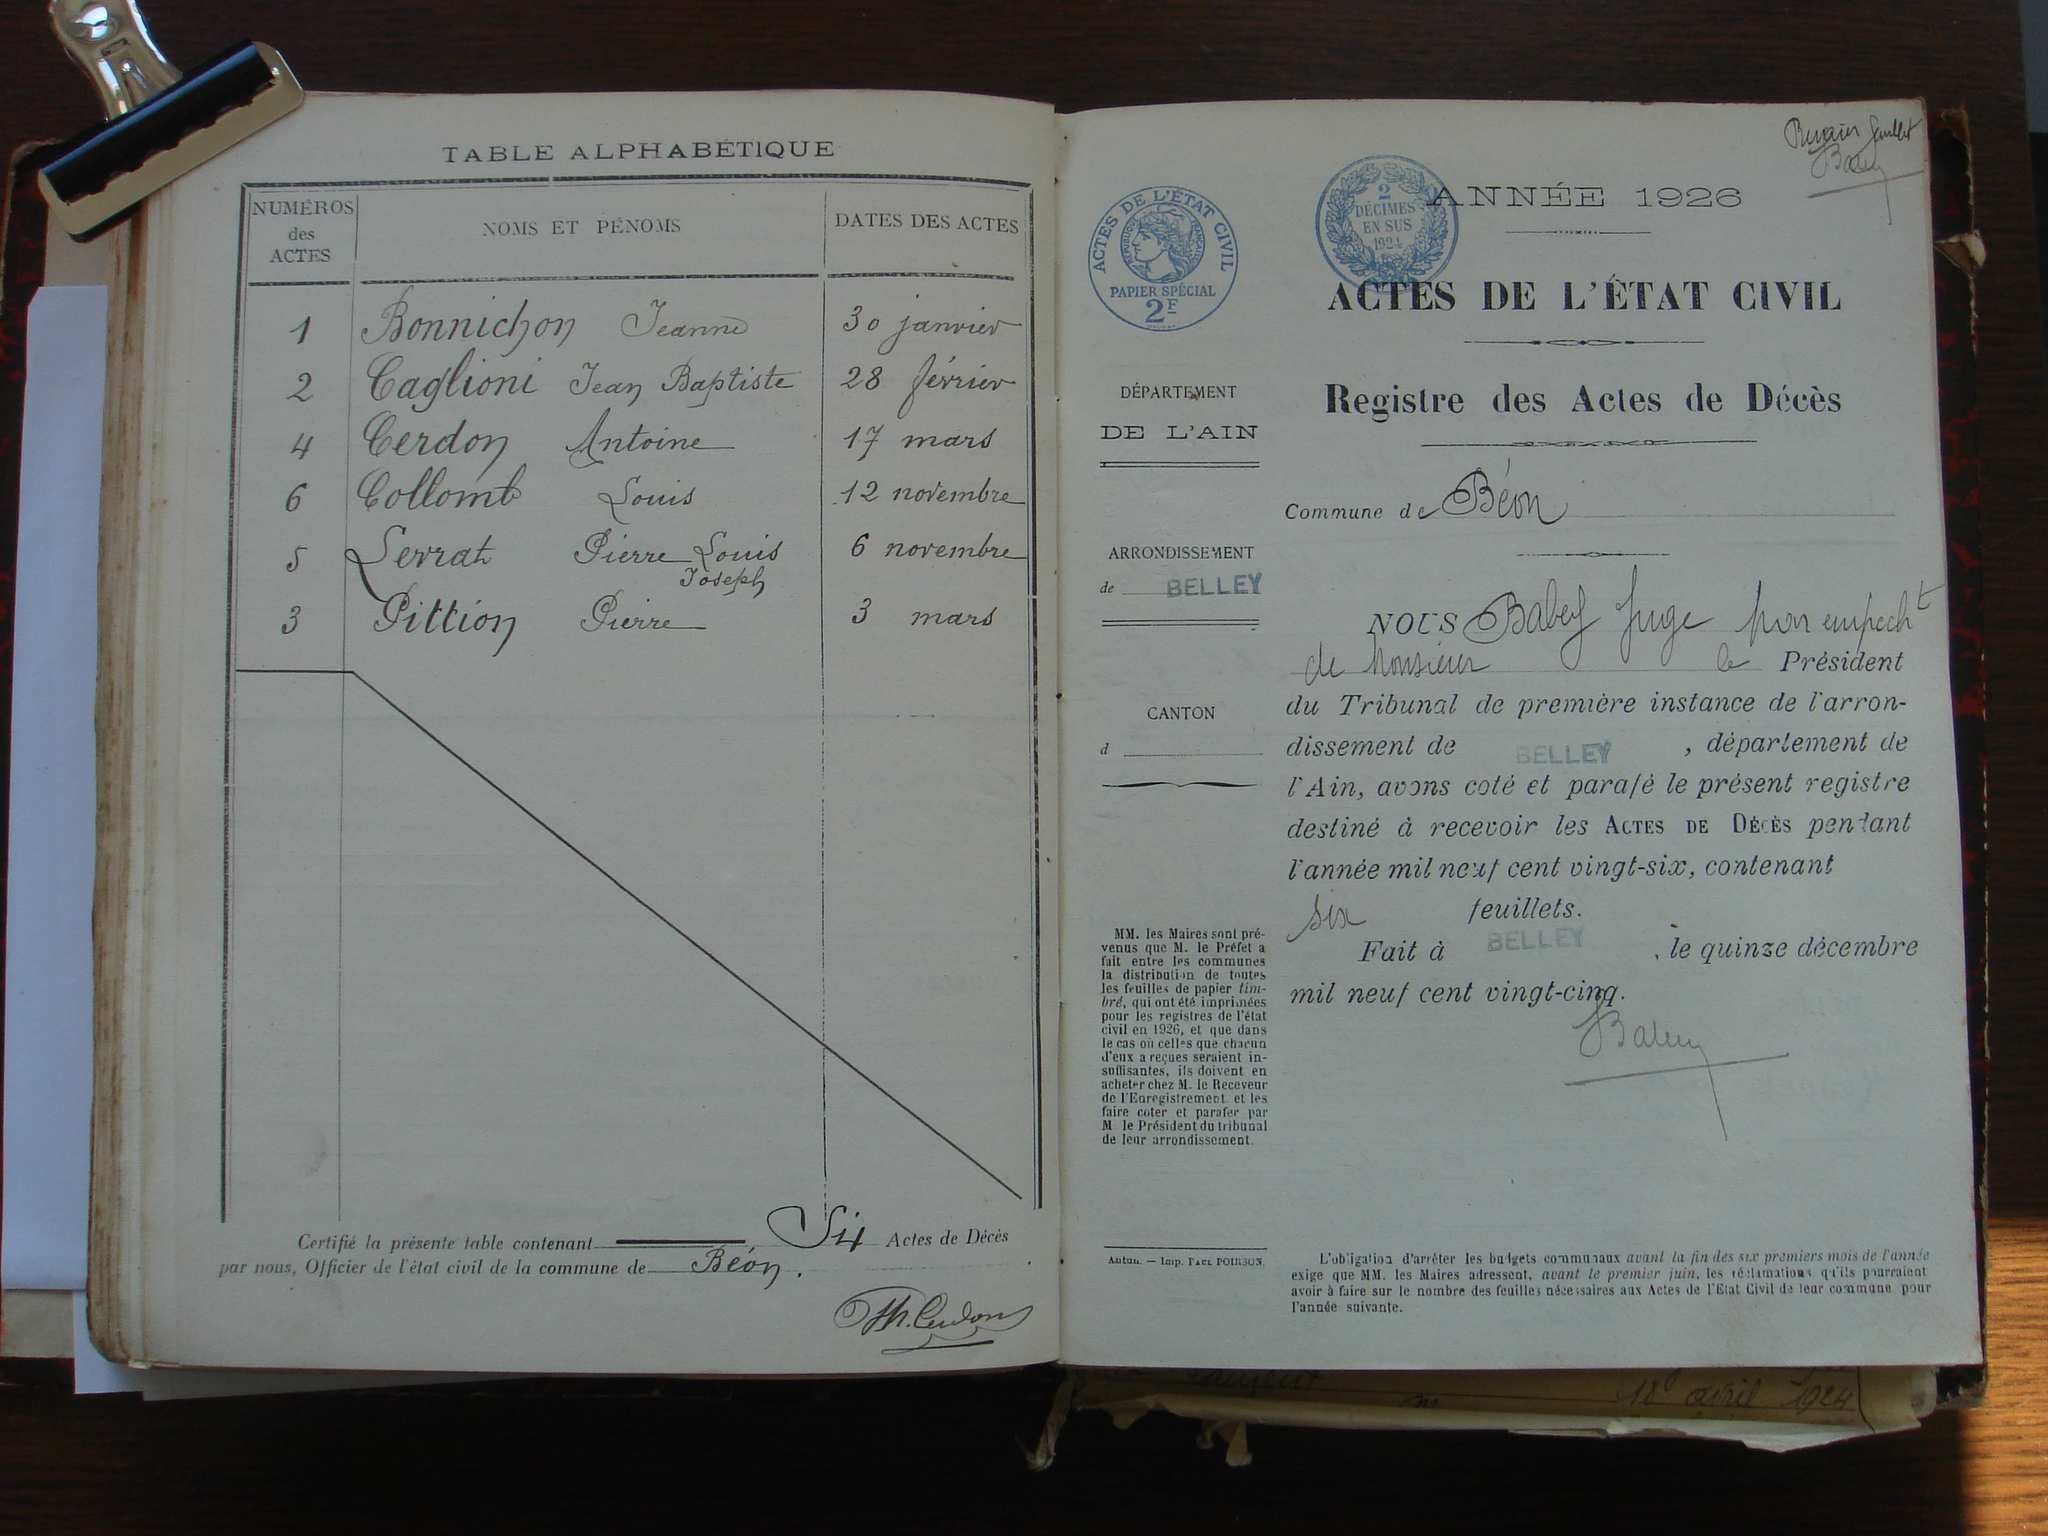 TABLE ALPHABÉTIQUE
NUMÉROS des ACTES
NOMS ET PÉNOMS
DATES DES ACTES
1 Bonnichon Jeanne 30 janvier
2 Caglioni Jean Baptiste 28 février
4 Cerdon Antoine 17 mars
6 Collomb Louis 12 novembre
5 Serrat Pierre Louis 6 novembre
Joseph
3 Pittion Pierre 3 mars
Certifié la présente table contenant Six Actes de Décès
par nous, Officier de l'état civil de la commune de Béon.
Premier feuillet
ACTES DE L'ÉTAT CIVIL
RÉPUBLIQUE FRANÇAISE
PAPIER SPÉCIAL
2F
2
DÉCIMES
EN SUS
1924
ANNÉE 1926
ACTES DE L'ÉTAT CIVIL
Registre des Actes de Décès
Commune de Béon
DÉPARTEMENT
DE L'AIN
ARRONDISSEMENT
de BELLEY
CANTON
d
NOUS Babey Juge par empecht
de Monsieur le Président
du Tribunal de première instance de l'arron-
dissement de BELLEY, département de
l'Ain, avons coté et parafé le présent registre
destiné à recevoir les ACTES DE DÉCÈS pendant
l'année mil neuf cent vingt-six, contenant
six feuillets.
Fait à BELLEY, le quinze décembre
mil neuf cent vingt-cinq.
Babey
MM. les Maires sont pré-
venus que M. le Préfet a
fait entre les communes
la distribution de toutes
les feuilles de papier tim-
bré, qui ont été imprimées
pour les registres de l'état
civil en 1926, et que dans
le cas où celles que chacun
d'eux a reçues seraient in-
suffisantes, ils doivent en
acheter chez M. le Receveur
de l'Enregistrement et les
faire coter et parafer par
M. le Président du tribunal
de leur arrondissement.
Autun. — Imp. PAUL POIRSON.
L'obligation d'arrêter les budgets communaux avant la fin des six premiers mois de l'année
exige que MM. les Maires adressent, avant le premier juin, les réclamations qu'ils pourraient
avoir à faire sur le nombre des feuilles nécessaires aux Actes de l'Etat Civil de leur commune pour
l'année suivante.
18 avril 1924